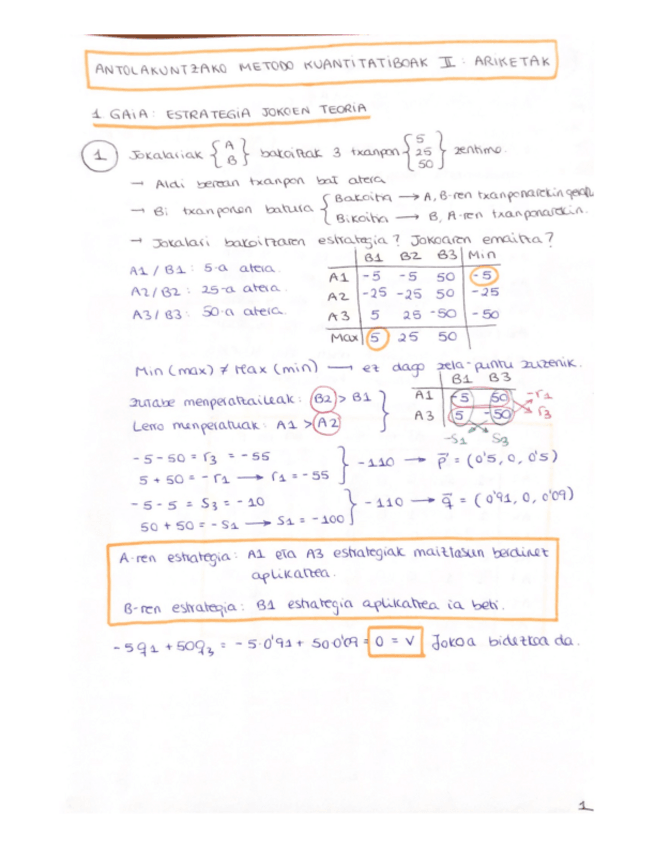 ANTOLAKUNTZAKO METODO KUANTITATIBOAK II : ARIKETAK
1 GAIA: ESTRATEGIA JOKOEN TEORIA
1 Jokalariak { A B } bakoitzak 3 txanpon { 5 25 50 } zentimo.
→ Aldi berean txanpon bat atera
→ Bi txanponen batura { Bakoitia → A, B-ren txanponarekin geratu
Bikoitia → B, A-ren txanponarekin.
→ Jokalari bakoitzaren estrategia? Jokoaren emaitza?
B1 B2 B3 Min
A1 / B1 : 5-a atera. A1 -5 -5 50 -5
A2 / B2 : 25-a atera. A2 -25 -25 50 -25
A3 / B3 : 50-a atera. A3 5 25 -50 -50
Max 5 25 50
Min (max) ≠ Max (min) → ez dago zela-puntu zuzenik.
B1 B3
Zutabe menperatzaileak : B2 > B1 A1 -5 50 -r1
Lerro menperatuak : A1 > A2 A3 5 -50 r3
-s1 s3
-5-50 = r3 = -55
5 + 50 = -r1 → r1 = -55 } -110 → p⃗ = (0'5, 0, 0'5)
-5-5 = s3 = -10
50 + 50 = -s1 → s1 = -100 } -110 → q⃗ = (0'91, 0, 0'09)
A-ren estrategia : A1 eta A3 estrategiak maiztasun berdinez
aplikatzea.
B-ren estrategia : B1 estrategia aplikatzea ia beti.
-5q1 + 50q3 = -5·0'91 + 50·0'09 = 0 = v Jokoa bidezkoa da.
1